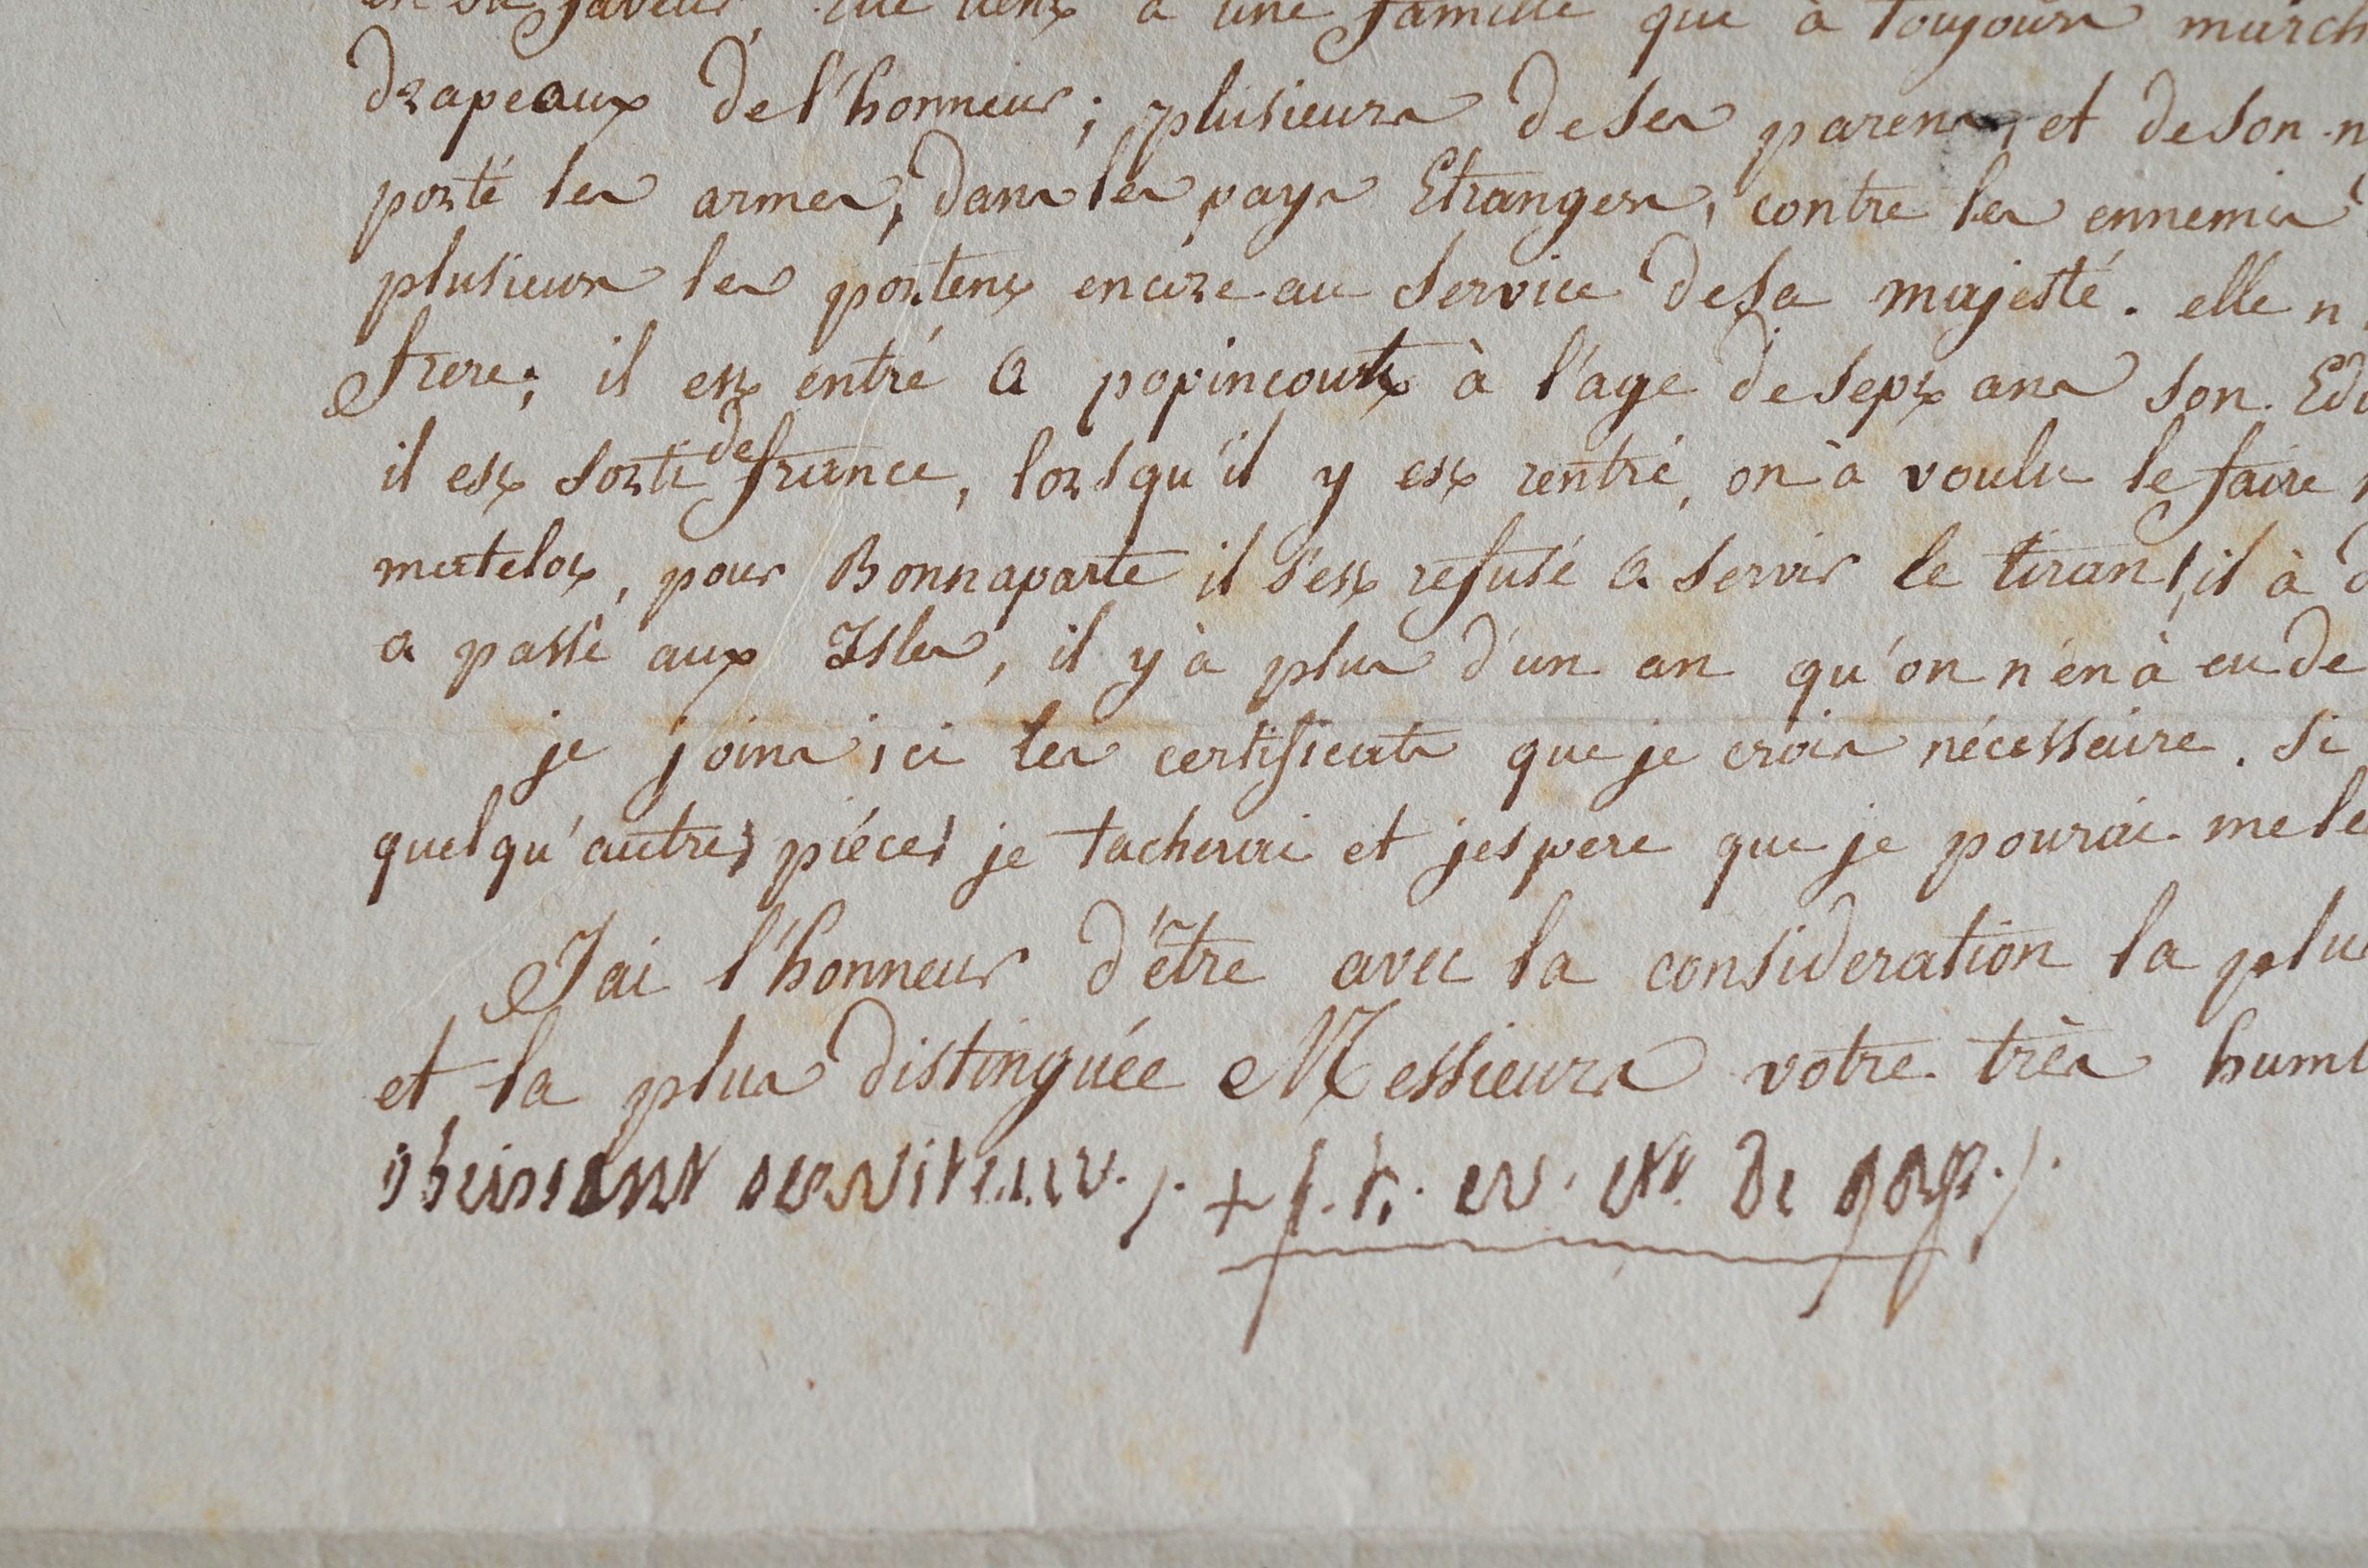 en sa faveur. elle tient à une famille qui à toujours march
drapeaux de l'honneur; plusieurs de ses parens, et de son n
porté les armes, dans les pays Etrangers, contre les ennemis
plusieurs les portent encore au service de sa majesté. elle n
frere; il est entré a popincourt à l'age de sept ans son Edu
il est sorti de france, lorsqu'il y est rentré, on à voulu le faire
matelot, pour Bonnaparte il s'est refusé a servir le tiran, il à d
a passé aux Isles, il y à plus d'un an qu'on n'en à eu de
je joins ici les certificats que je crois nécessaire. Si
quelqu'autres piéces je tacherai et jespere que je pourai me le
Jai l'honneur d'être avec la consideration la plus
et la plus distinguée Messieurs votre très humb
obeissant serviteur ./. + f. h. ev. de gap ./.